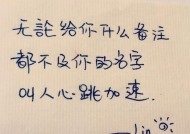 无論给你什么备注
都不及你的名字
叫人心跳加速.
Lin